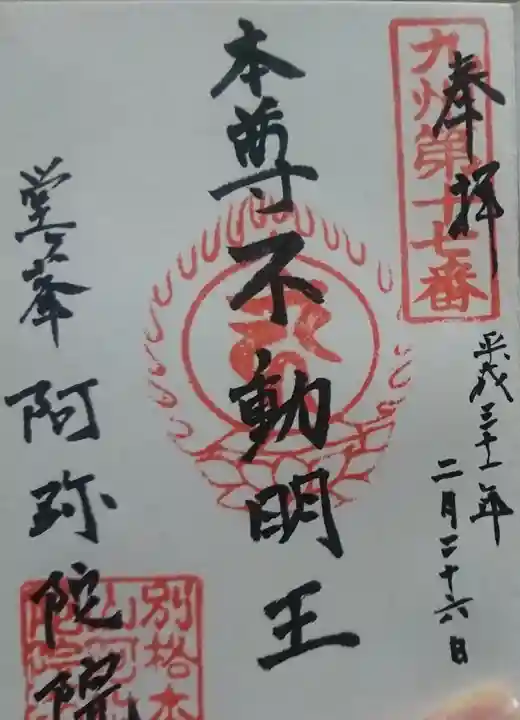 奉拝
九州第十七番
平成三十一年
二月二十六日
本尊不動明王
堂ヶ峯
阿弥陀院
別格本